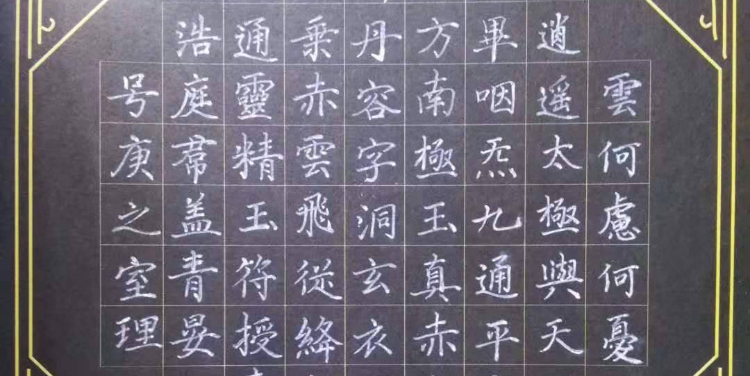 雲何慮何憂
逍遥太極與天
畢咽炁九通平
方南極玉真赤
丹容字洞玄衣
乗赤雲飛從絳
通靈精玉符授
浩庭盖青晏
号庚之室理